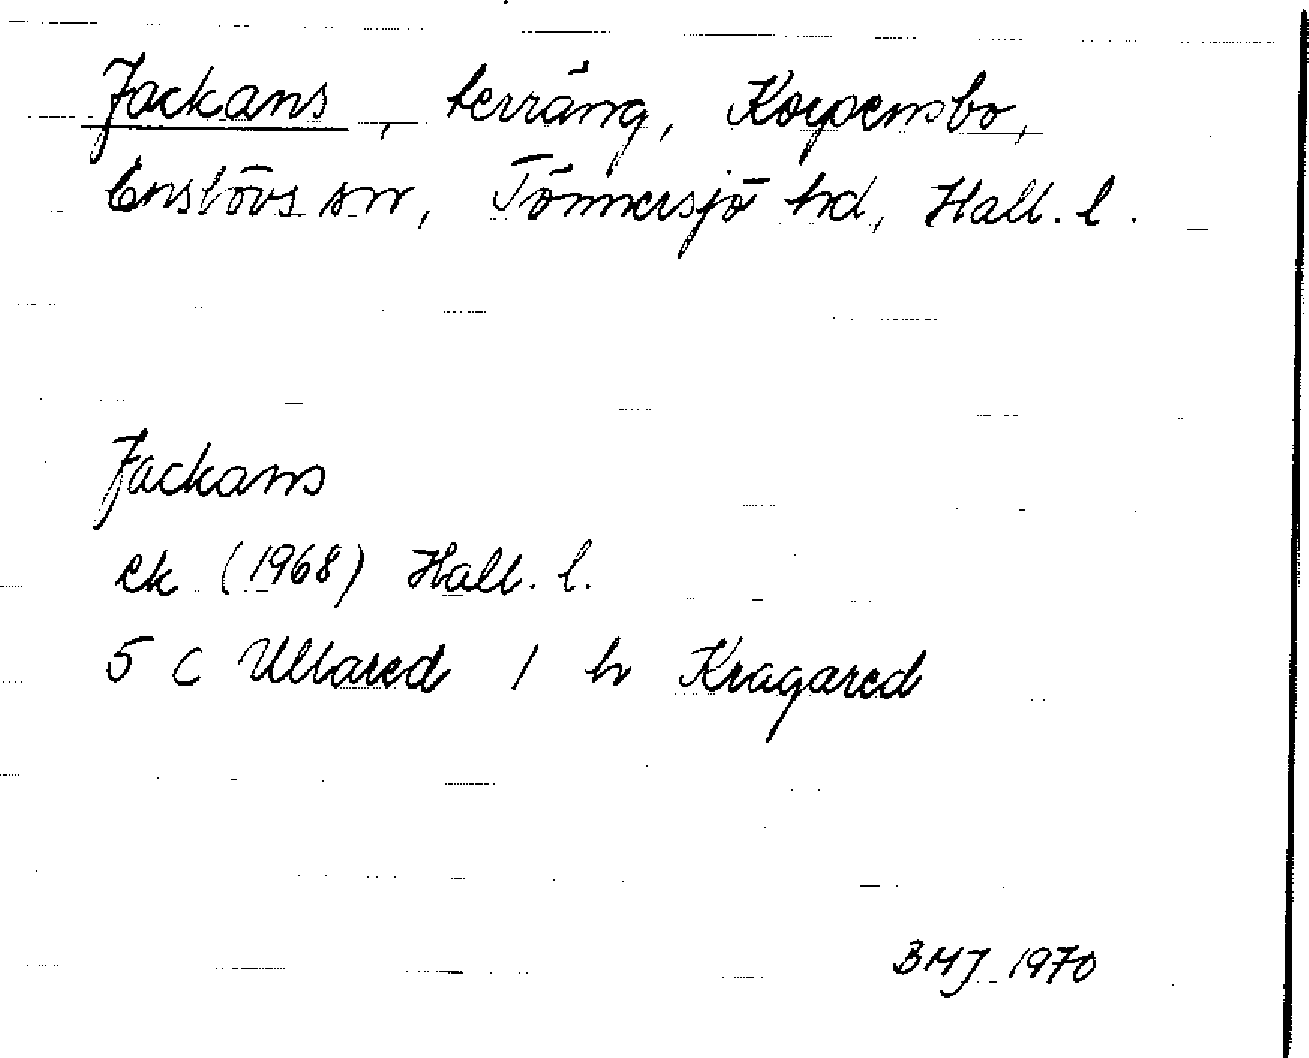 Jackans, terräng, Korpensbo,
Enslövs sn, Tönnersjö hd, Hall. l.
Jackans
ek (1968) Hall. l.
5 C Ullared 1 h Kragared
BMJ 1970